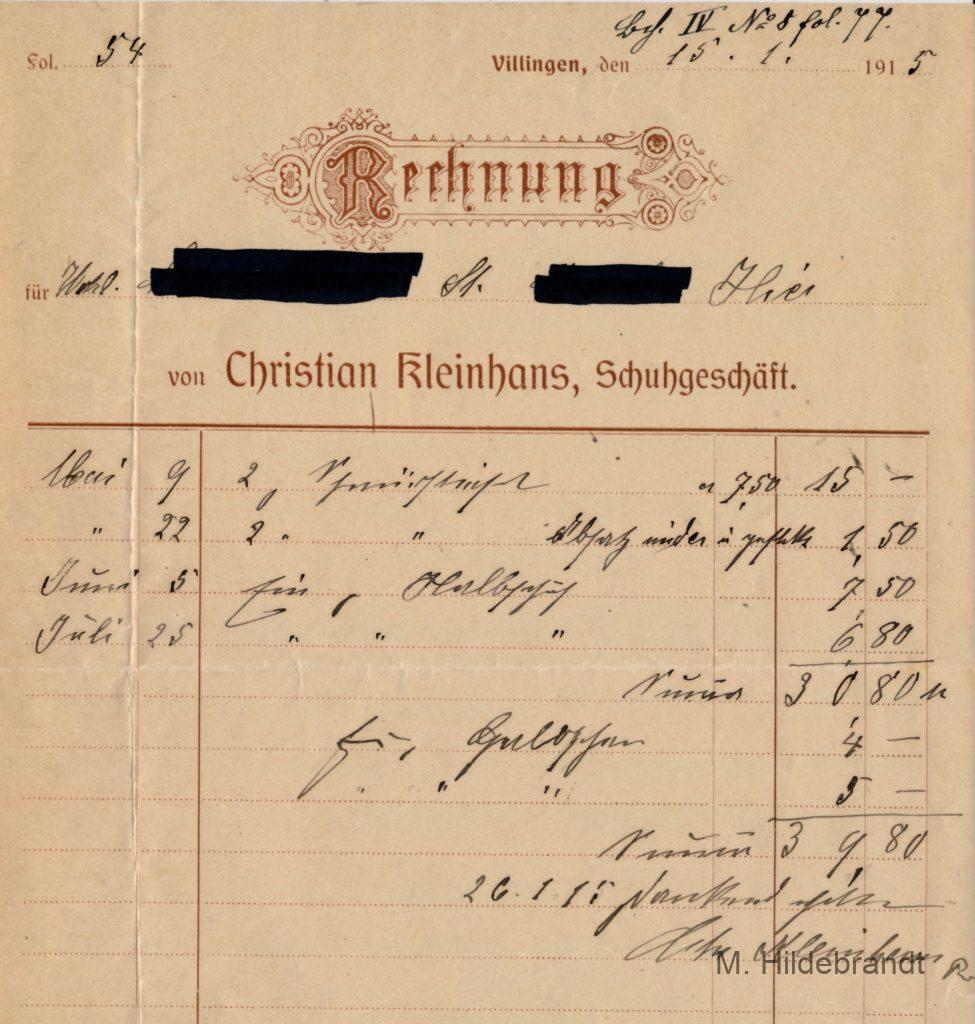 Bch. IV No 8 fol. 77.
Fol. 54 Villingen, den 15. 1. 1915
Rechnung
für St. Hier
von Christian Kleinhans, Schuhgeschäft.
Mai 9 2 a 7,50 15 -
" 22 2 " " Absatz nieder u 1,50
Juni 5 Ein Halbschuh 7 50
Juli 25 " " " 6,80
Summa 30 80
4 -
" " " 5 -
Summa 39,80
26.1.15 dankend erhalten
Chr. Kleinhans
M. Hildebrandt